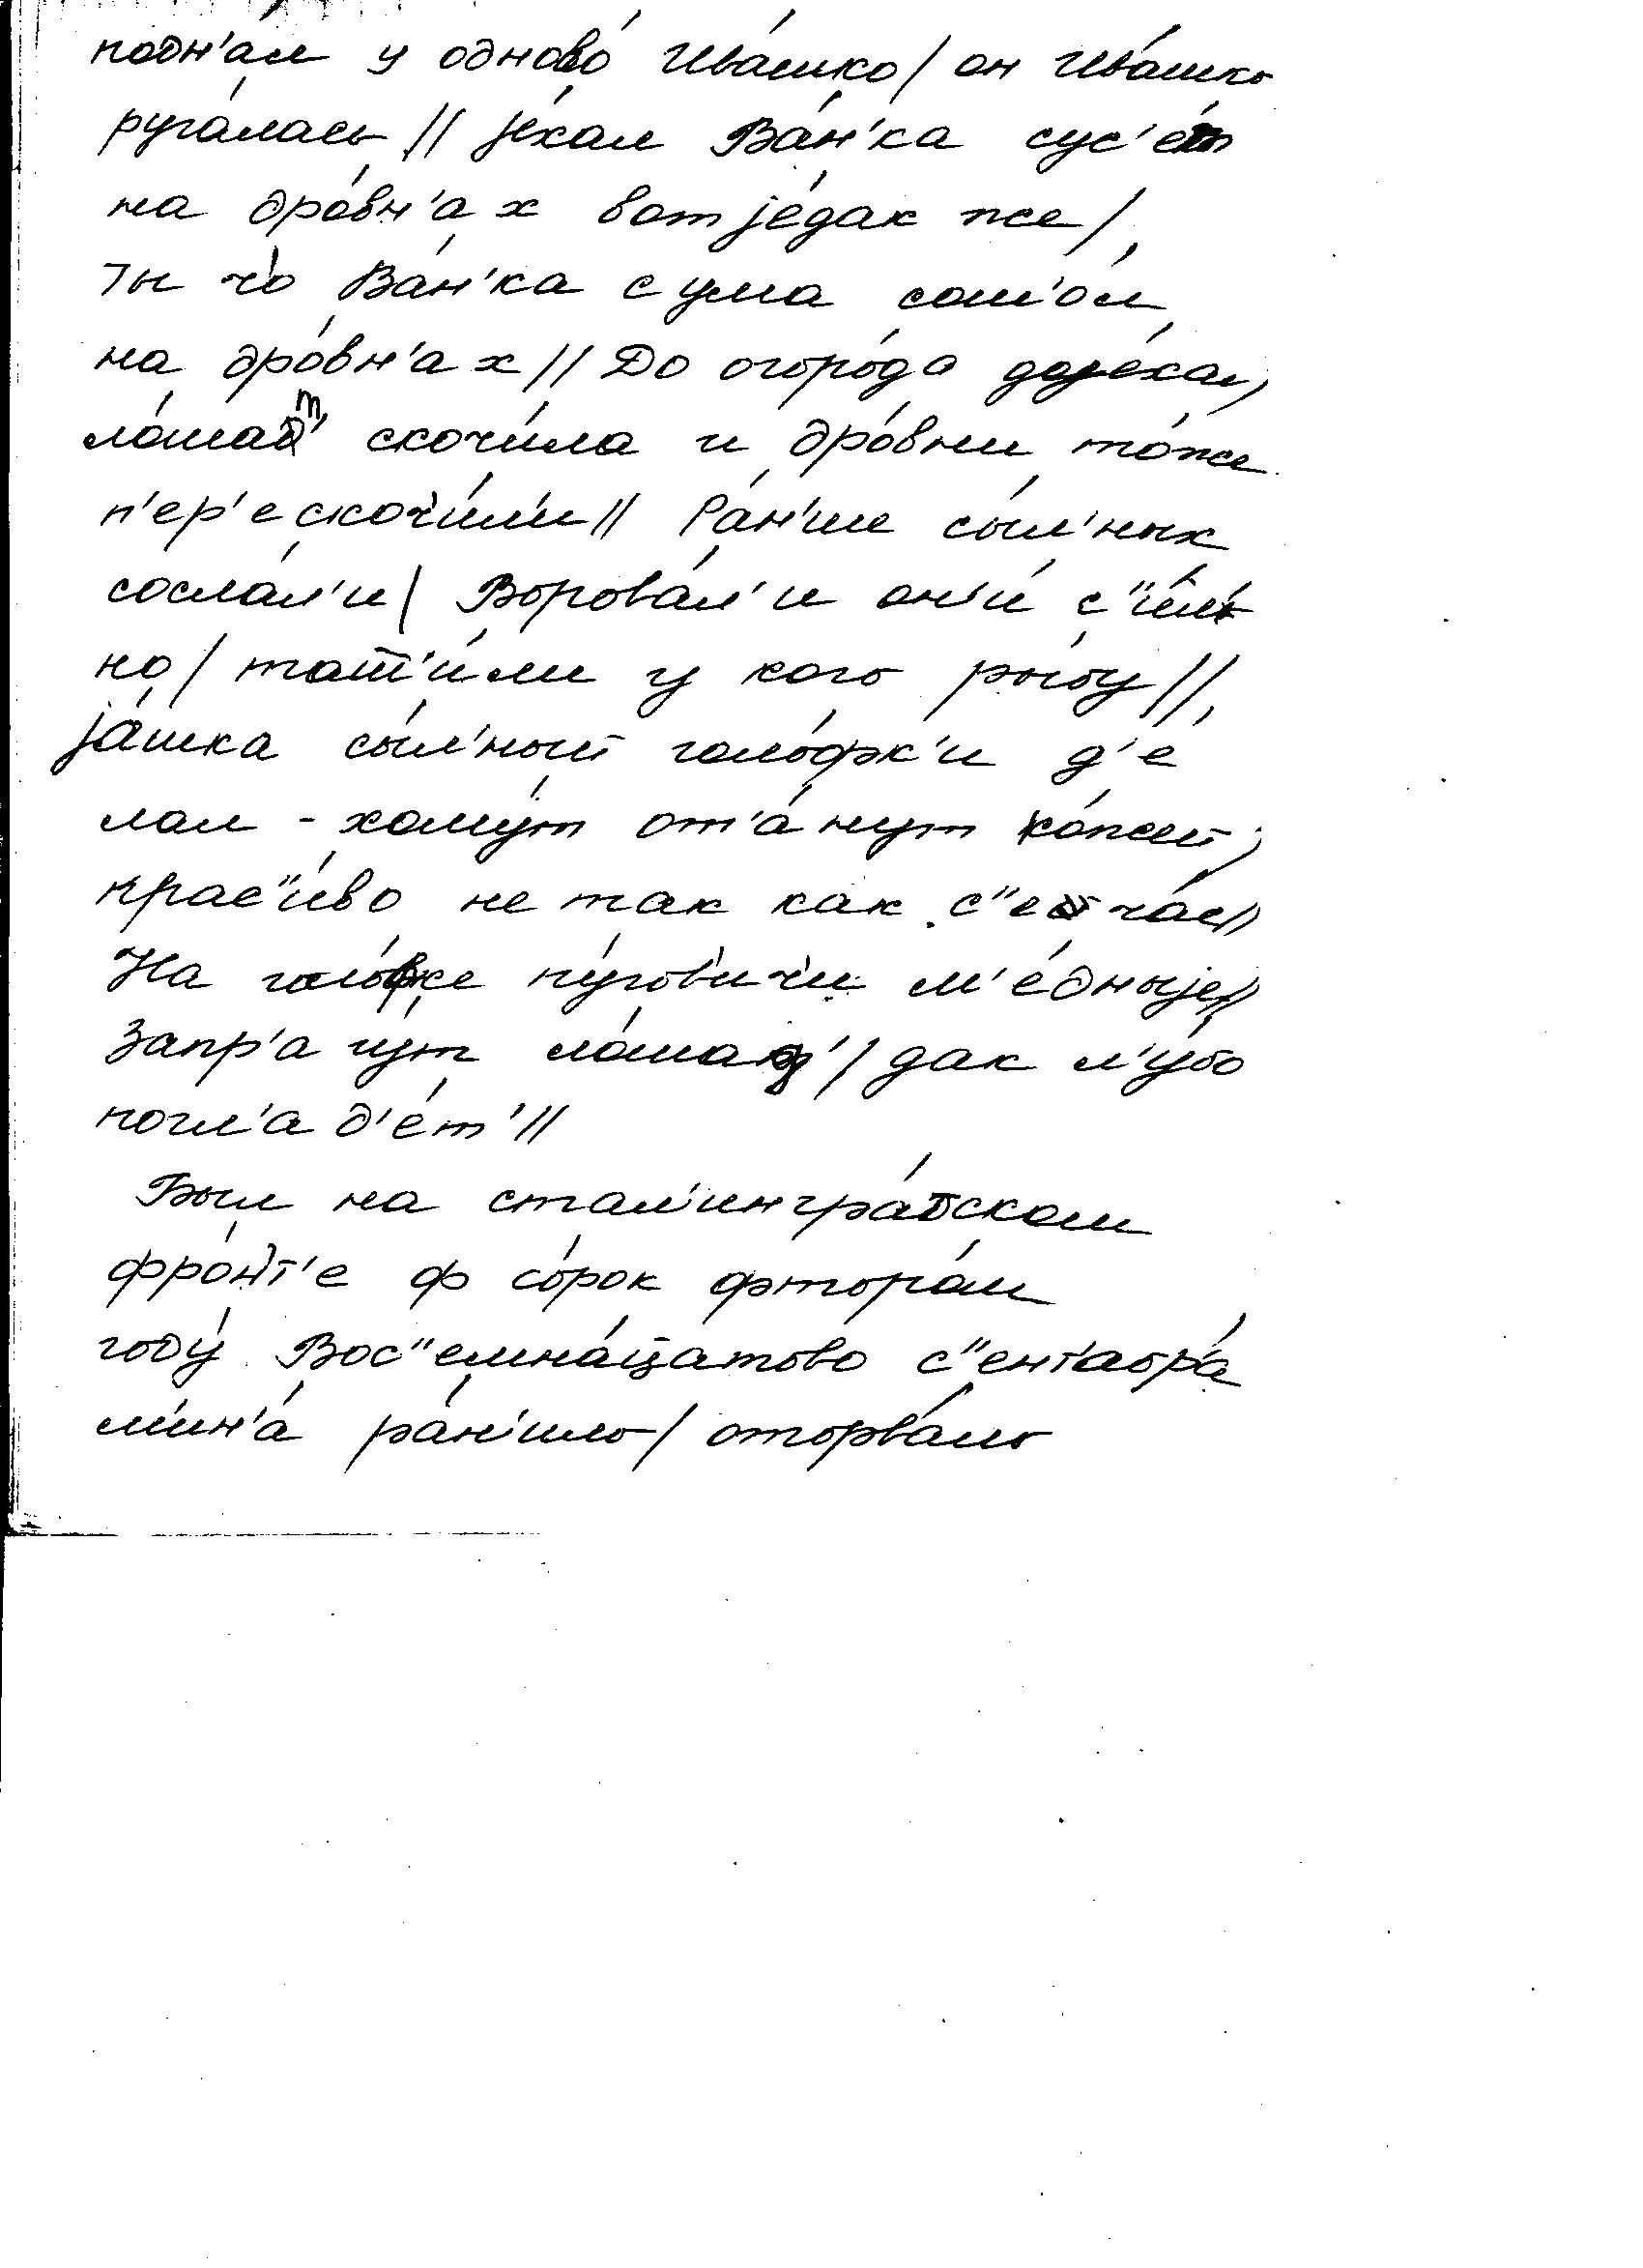 подн'а́л у одново́ Ива́шко/ он Ива́шко
руга́лась // је́хал Ва́н'ка сус'е́т
на дро́вн'ах вот је́дак же/
Ты чо Ва́н'ка с ума сош'о́л
на дро́вн'ах // До огоро́да дојехал,
ло́шат' скочи́ла и дро́вни то́же
п'ер'ескочи́л'и // Ра́н'ше сы́л'ных
сосла́л'и / Ворова́л'и он'и́ с"и́л'
но / тащ'и́ли у кого ры́бу //
ја́шка сы́л'ный голо́фк'и д'е́
лал - хому́т от'а́нут ко́жей,
крас"и́во не так как с"ейча́с //
На голо́фке пу́гов'ичи м'е́дныје //
Запр'агу́т ло́шад' / дак л'у́бо
погл'ад'е́т' //
Был на стал'ингра́цком
фро́нт'е ф со́рок фторо́м
году́ Вос"емна́цатово с"ент'абр'а́
м'ин'а́ ра́н'ило / оторва́ло